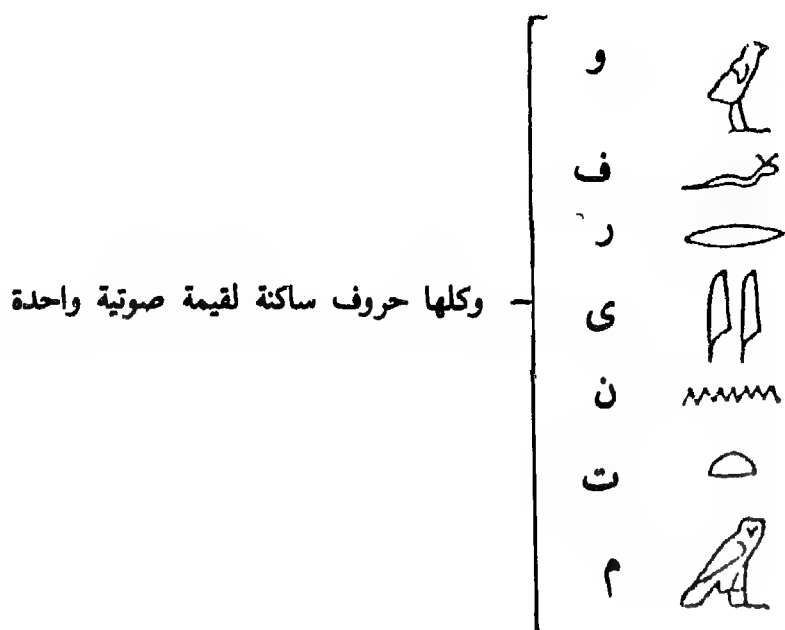 و 𓅱
ف 𓆑
ر 𓂋
ى 𓇌
ن 𓈖
ت 𓏏
م 𓅓
– وكلها حروف ساكنة لقيمة صوتية واحدة